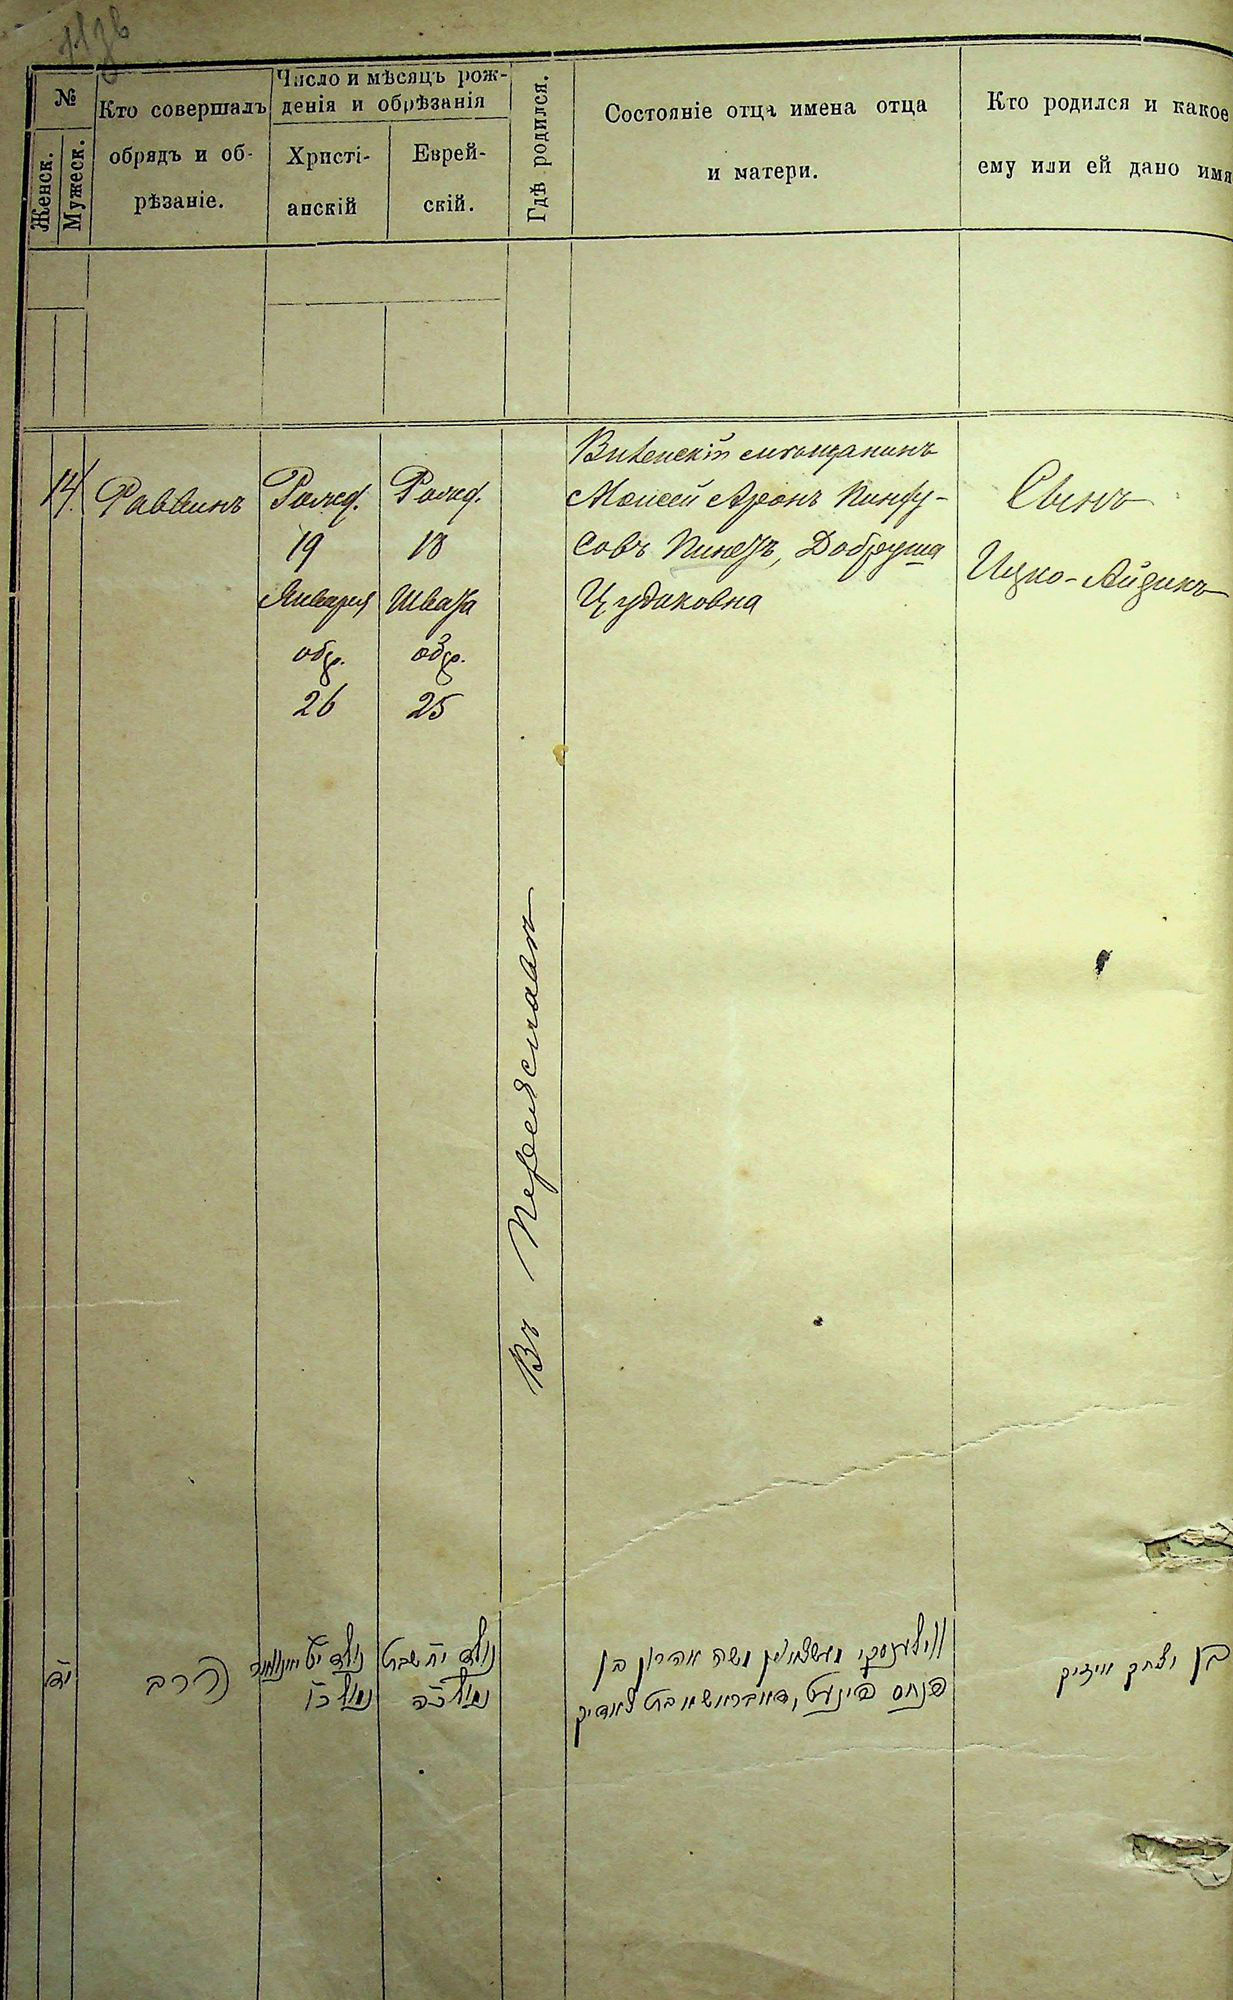 №
Женск.
Мужеск.
Кто совершалъ
обрядъ и об-
рѣзаніе.
Число и мѣсяцъ рож-
денія и обрѣзанія
Христі-
анскій
Еврей-
скій.
Гдѣ родился.
Состояніе отца имена отца
и матери.
Кто родился и какое
ему или ей дано имя
14
Раввинъ
Рожд.
19
Января
обр.
26
Рожд.
18
Швата
обр.
25
Въ Переяславѣ
Виленскій мѣщанинъ
Моисей Аронъ Пинху-
совъ Пинезъ, Добруша
Цудиковна
Сынъ
Ицко-Айзикъ
יד
הרב
נולד יט יאנואר
נמול כו
נולד יח שבט
נמול כה
ווילענסקי מעשצאנין משה אהרון בן
פנחס פינעס, דאברושא בת צאדיק
בן יצחק אייזיק